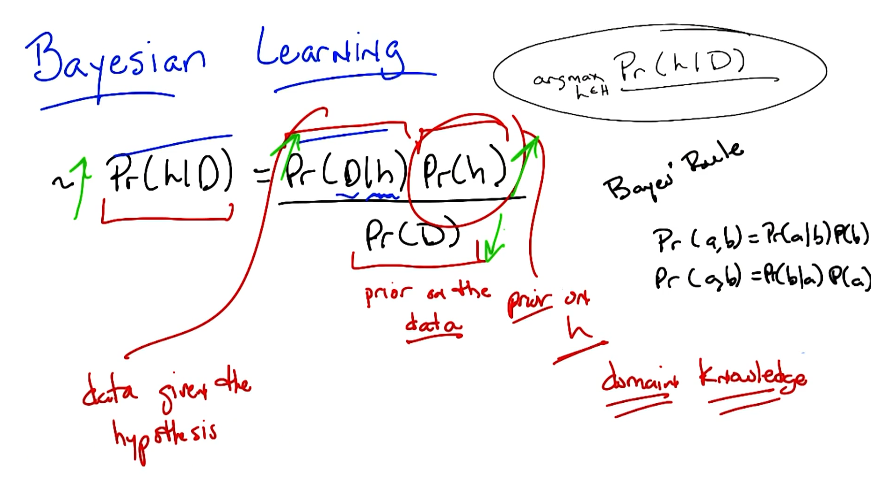 Bayesian Learning
argmax h∈H Pr(h|D)
~ Pr(h|D) = Pr(D|h) Pr(h)
Pr(D)
Bayes' Rule
Pr(a,b)=Pr(a|b)P(b)
Pr(a,b)=Pr(b|a)P(a)
prior on the
data
prior on
h
data given the
hypothesis
domain knowledge